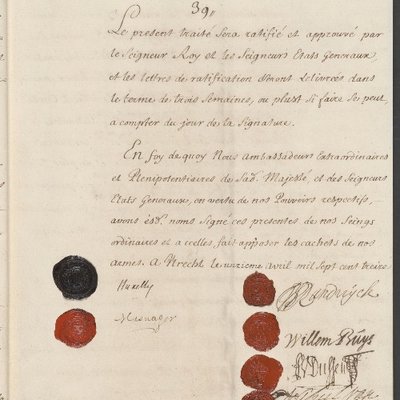 39.
Le present traité Sera ratifié et approuvé par
le Seigneur Roy et les Seigneurs Etats Generaux,
et les lettres de ratification seront delivrées dans
le terme de trois Semaines, ou plustôt si faire se peut,
a compter du jour de la Signature.
En foy de quoy Nous Ambassadeurs Extraordinaires
et Plenipotentiaires de Sad.e Majesté et des Seigneurs
Etats Generaux, en vertu de nos Pouvoirs respectifs,
avons esd. noms Signé ces presentes de nos Seings
ordinaires et a icelles, fait apposer les cachets de nos
armes. A Utrecht le unzieme avril mil sept cent treize.
Huxelles
Mesnager
Randwijck
Willem Buys